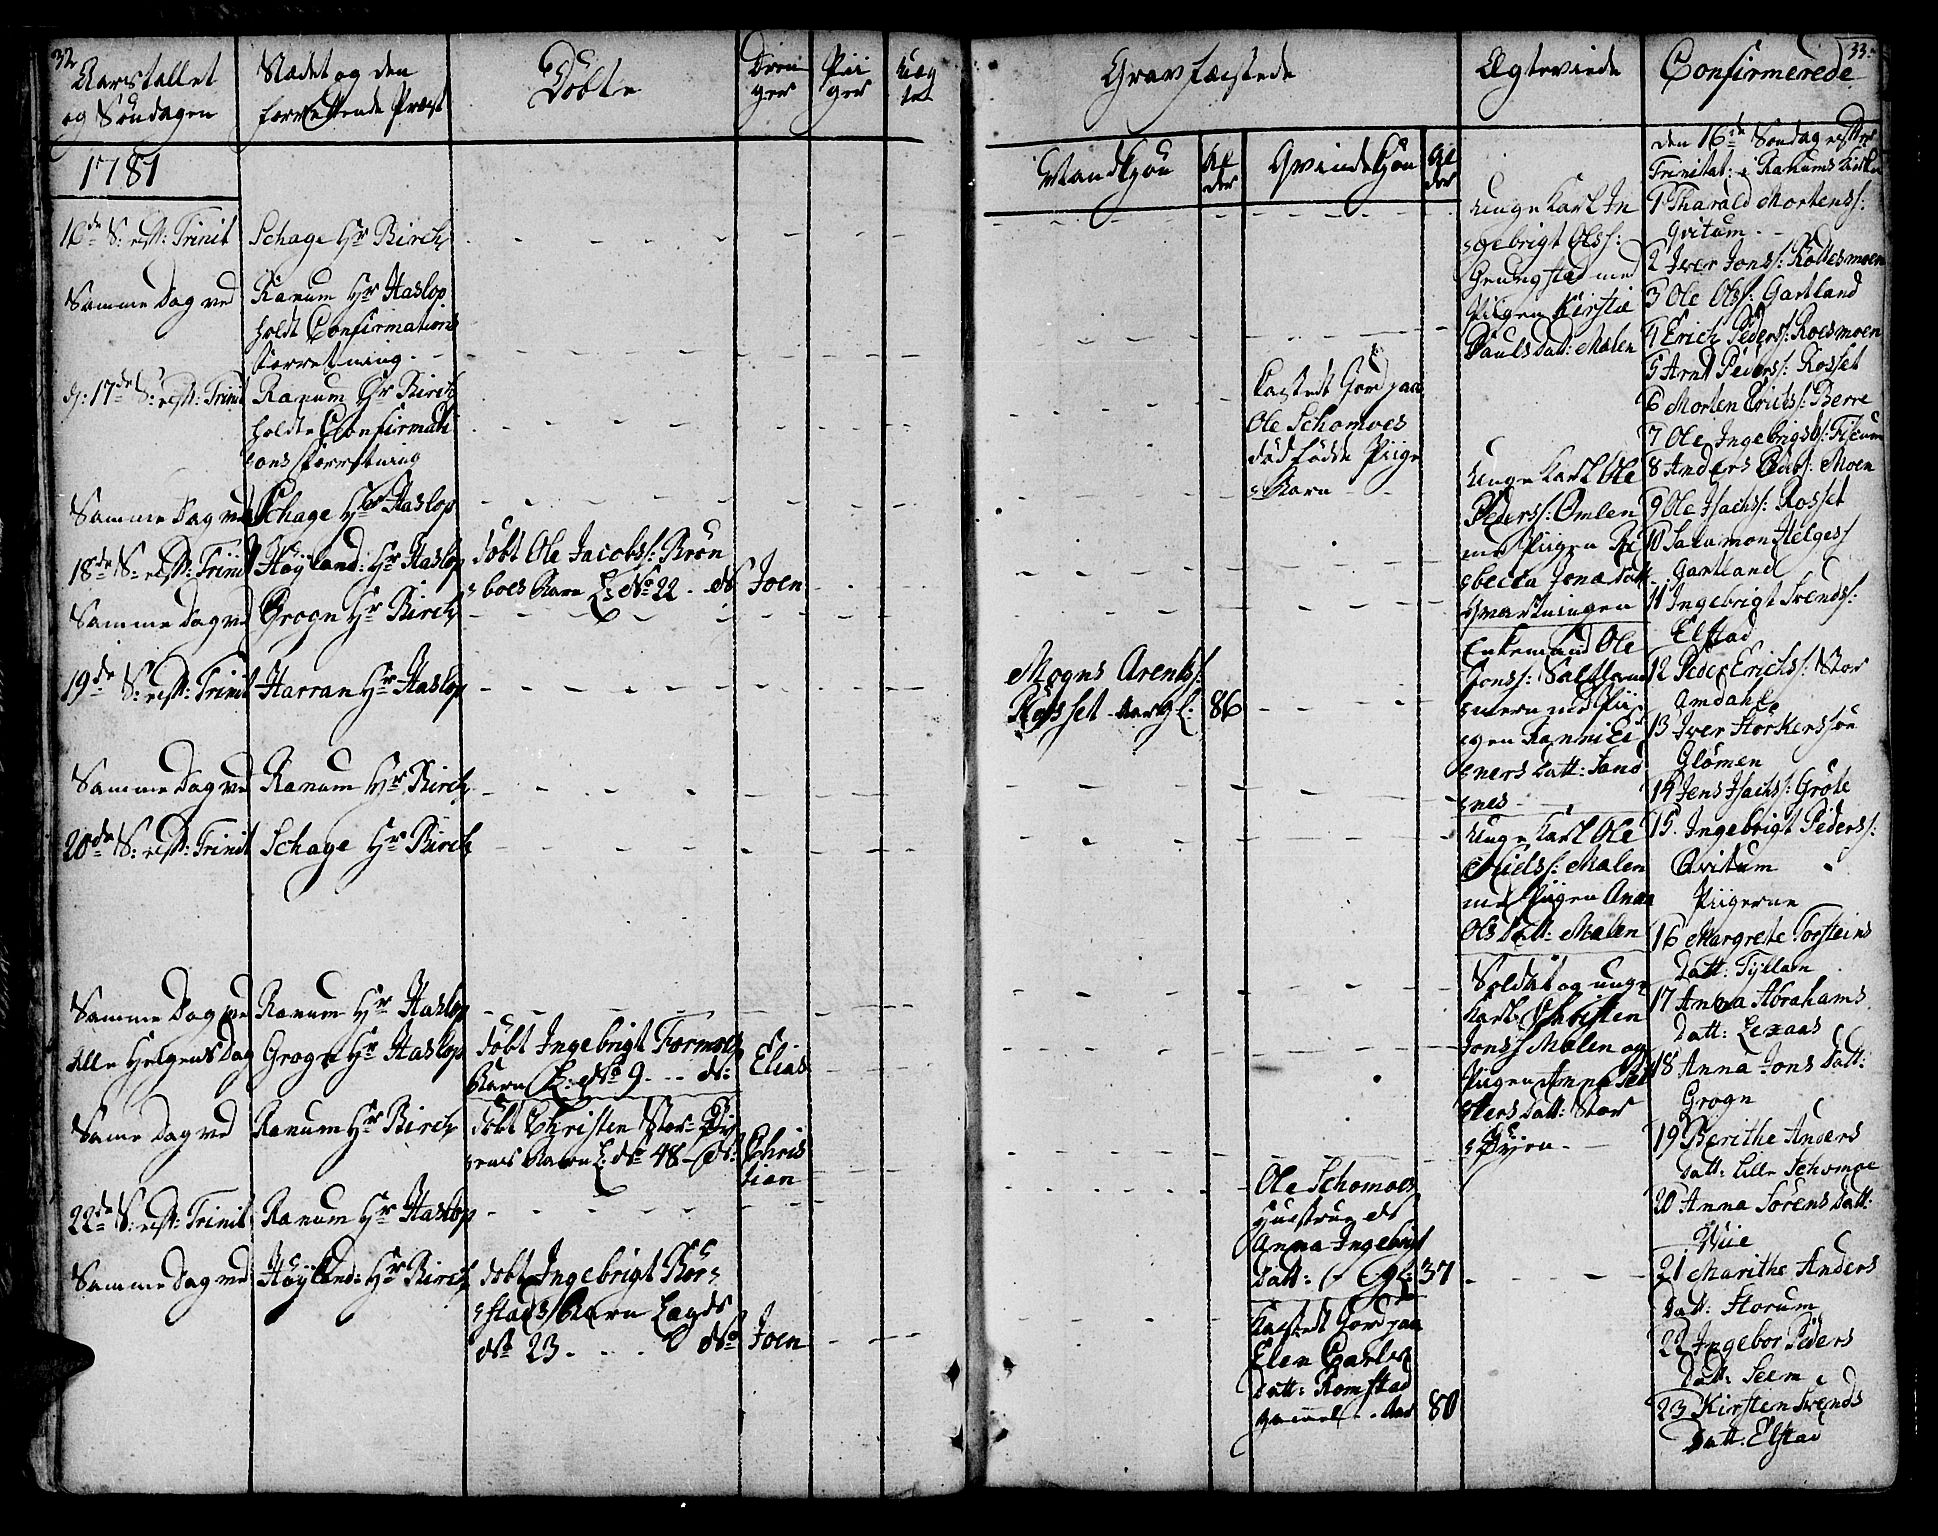 32
Aarstallet
og Søndagen
Stædet og den
forrettende Præst
Døbte
Dren
ger
Pii
ger
Uæg
te
1781
16de S: eft: Trinit
Schage Hr Birch
Samme Dag ved
Ranum Hr Haslop
holdt Confirmations
forretning.
D: 17de S: eft: Trinit
Ranum Hr Birch
holdte Confirmati
ons forretning
Samme Dag ved
Schage Hr Haslop
18de S: eft: Trinit
Høyland: Hr Haslop
døbt Ole Jacobs: Brøn
boes Barn L: No 22 - N
Joen
Samme Dag ved
Grogn Hr Birch
19de S: eft: Trinit
Harran Hr Haslop
Samme Dag ved
Ranum Hr Birch
20de S: eft: Trinit
Schage Hr Birch
Samme Dag ved
Ranum Hr Haslop
Alle Helgens Dag
Grogn Hr Haslop
døbt Ingebrigt Formoes
Barn L: No 9 - - - N:
Elias
Same Dag ved
Ranum Hr Birch
døbt Christen Stor-
Barn L: No 48 - N:
Chris
tian
22de S: eft: Trinit
Ranum Hr Haslop
Samme Dag ved
Høyland: Hr Birch
døbt Ingebrigt Bør
stads Barn Lægds
No 23 - - - No
Joen
33
Gravfæstede
Mandkjøn
Al
der
Qvindekjøn
Al
der
Kastedt Jord paa
Ole Schomoes
død fødde Piige
Barn
Mogns Arents:
Rosset - Aar gl:
86
Ole Schomoes
Huustrue N
Anna Ingebrigt
Datt:
37
Kastedt Jord paa
Elen Carls
Datt: Romstad
gammel - Aar
80
Ægteviede
Unge Karl In
gebrigt Ols:
Grungstad med
Pigen Kirstie
Pauls Datt: Mælen
Unge Karl Ole
Peders: Omlen
med Piigen Re
becca Jona Datt
Svartningen
Enkemand Ole
Jons: Saltland
med Pii
gen Ranni Ei
ners Datt: Sand
nes
Unge Karl Ole
Niels: Mælen
med Piigen Anna
Ols Datt: Mælen
Soldat og unge
Karl Christen
Jons: Mælen og
Piigen Anna
ters Datt: Stor
Confirmerede
den 16de Søndag efter
Trinitat: i Ranums Kirke
1 Tharald Mortens:
Qvitum
2 Iver Jons: Kottesmoen
3 Ole Ols: Gartland
4 Erich Peders: Roesmoen
5 Arnt Peders: Rosset
6 Morten Erichs: Berre
7 Ole Ingebrigts: Fiskum
8 Anders Moen
9 Ole Isachs: Rosset
10 Salamon Helges:
Gartland
11 Ingebrigt Svends:
Elstad
12 Peder Erichs: Stor
Amdahl
13 Iver Størkerssøn
Glømen
14 Jens Isachs: Grøte
15. Ingebrigt Peders:
Qvitum
Piigerne
16 Margrete Torsteins
Datt:
17 Anna Abrahams
Datt: Lexaas
18 Anna Jons Datt:
Grogn
19 Berithe Anders
Datt: Lille Schomoe
20 Anna Sørens Datt:
Wiie
21 Marithe Anders
Datt: Storum
22 Ingebor Peders
Datt: Seem
23 Kirsten Svends
Datt: Elstad